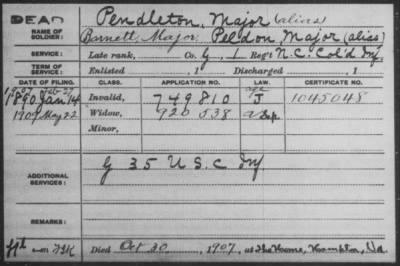 DEAD Pendleton, Major (alias)
NAME OF SOLDIER: Burnett, Major Peldon, Major (alias)
SERVICE: Late rank, Co. G, 1 Reg't N.C. Col'd Inf.
TERM OF SERVICE: Enlisted , 1 Discharged , 1
DATE OF FILING. CLASS. APPLICATION NO. LAW. CERTIFICATE NO.
1907 Feb 27 age
1890 Jan 14 Invalid, 749810 J 1045048
1907 May 22 Widow, 920538
Minor,
ADDITIONAL SERVICES: G 35 U S C Inf
REMARKS:
Died Oct 30, 1907, at the Home, Hampton, Va.